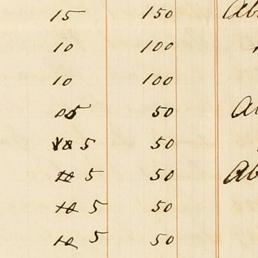 15 150 Ab
10 100
10 100
05 50 A
10 5 50
10 5 50 Ab
10 5 50
10 5 50